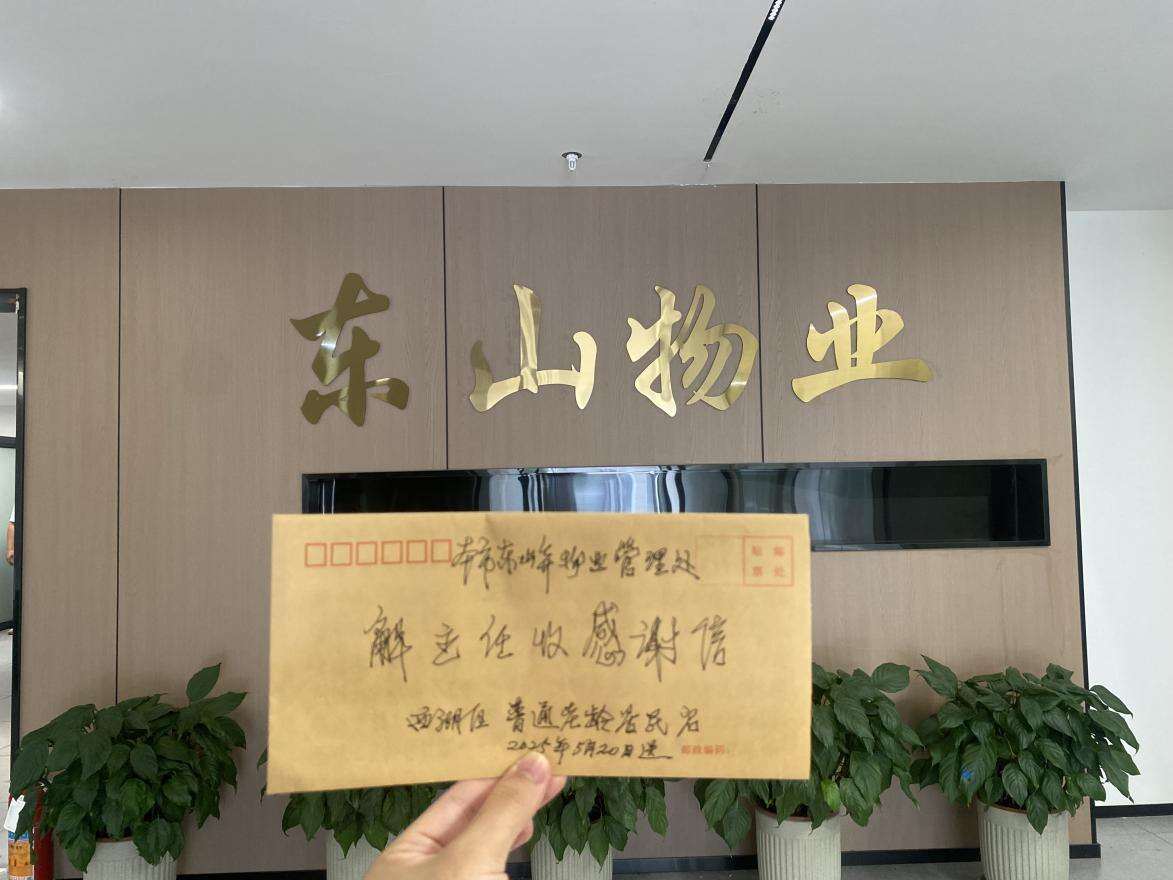 东山物业
本市东山年物业管理处
贴邮
票处
解主任收感谢信
西湖区 普通老龄居民启
2025年5月20日送 邮政编码: